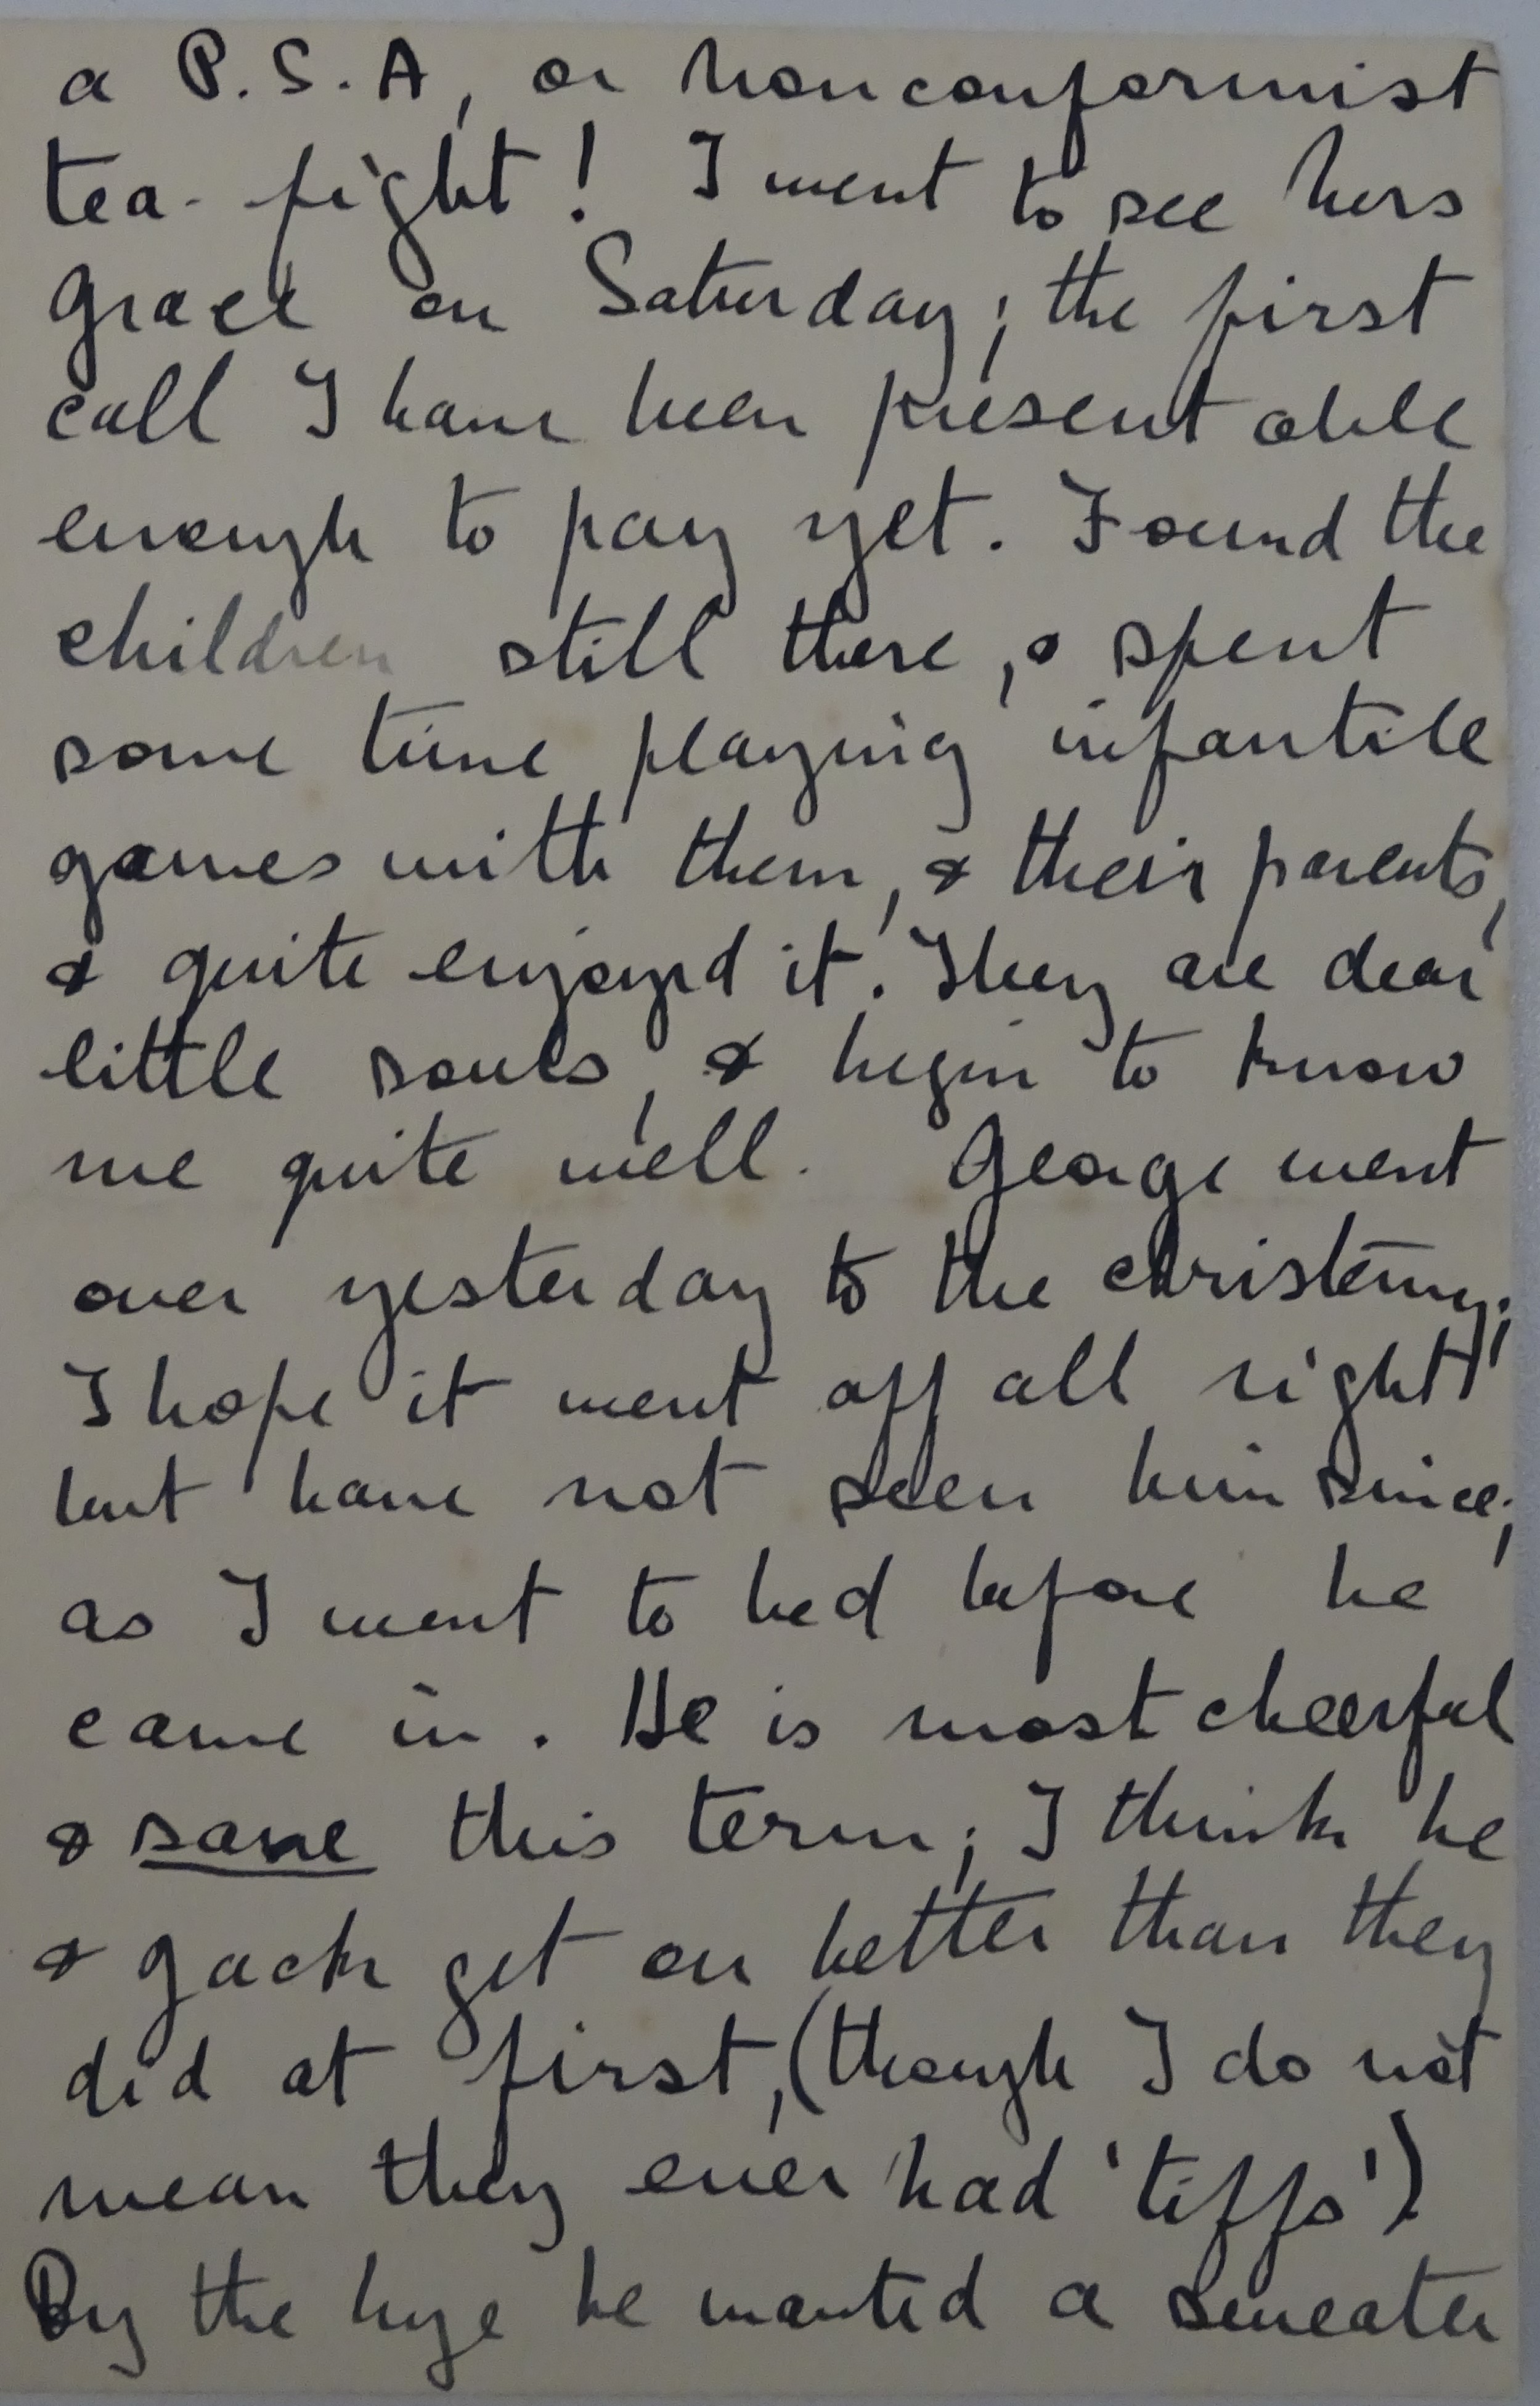 a P.S.A, or nonconformist
tea-fight! I went to see Mrs
Grace on Saturday; the first
call I have been presentable
enough to pay yet. Found the
children still there, & spent
some time playing infantile
games with them, & their parents,
& quite enjoyed it. They are dear
little souls, & begin to know
me quite well. George went
over yesterday to the christening;
I hope it went off all right
but have not seen him since;
as I went to bed before he
came in. He is most cheerful
& sane this term; I think he
& Jack get on better than they
did at first, (though I do not
mean they ever had 'tiffs')
By the bye he wanted a sweater